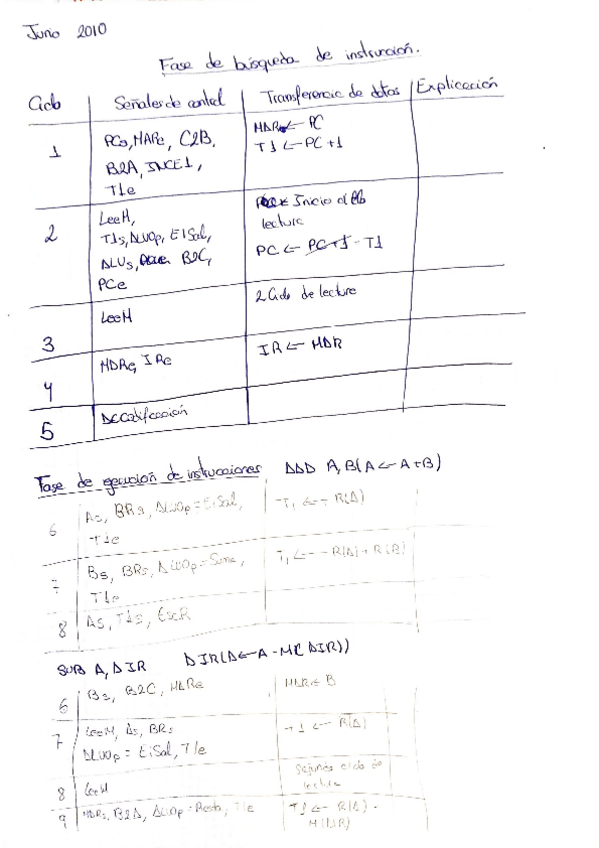 Junio 2010
Fase de búsqueda de instrucción.
Ciclo Señales de control Transferencia de datos Explicación
1 PCs, MARe, C2B, MAR ← PC
B2A, INCE1, T1 ← PC+1
T1e
2 LeeM, Inicio
T1s, ALUOp, EISal, lectura
ALUs, B2C, PC ← PC+1 - T1
PCe
3 LeeM 2 Ciclo de lectura
4 MDRs, IRe IR ← MDR
5 Decodificación
Fase de ejecución de instrucciones ADD A, B(A ← A+B)
6 As, BRs, ALUOp = EiSal, T1 ← R(A)
T1e
7 Bs, BRs, ALUOp = Suma, T1 ← R(A) + R(B)
T1e
8 As, T1s, EscR
SUB A, DIR DIR(A ← A - M(DIR))
6 Bs, B2C, MARe MAR ← B
7 LeeM, As, BRs T1 ← R(A)
ALUOp = EiSal, T1e
8 LeeM Segundo ciclo de
lectura
9 MDRs, B2A, ALUOp = Resta, T1e T1 ← R(A) -
M(DIR)